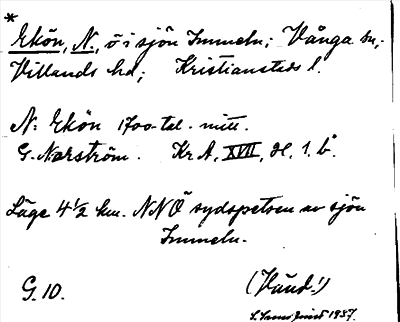 *
Ekön, N., ö i sjön Immeln; Vånga sn,
Villands hd; Kristianstads l.
N: Ekön 1700-tal. mitt.
G. Narström. Kr A, XVII, , 1. b.
Läge 4½ km. NNÖ sydspetsen av sjön
Immeln.
G. 10.
(Vänd!)
1937.